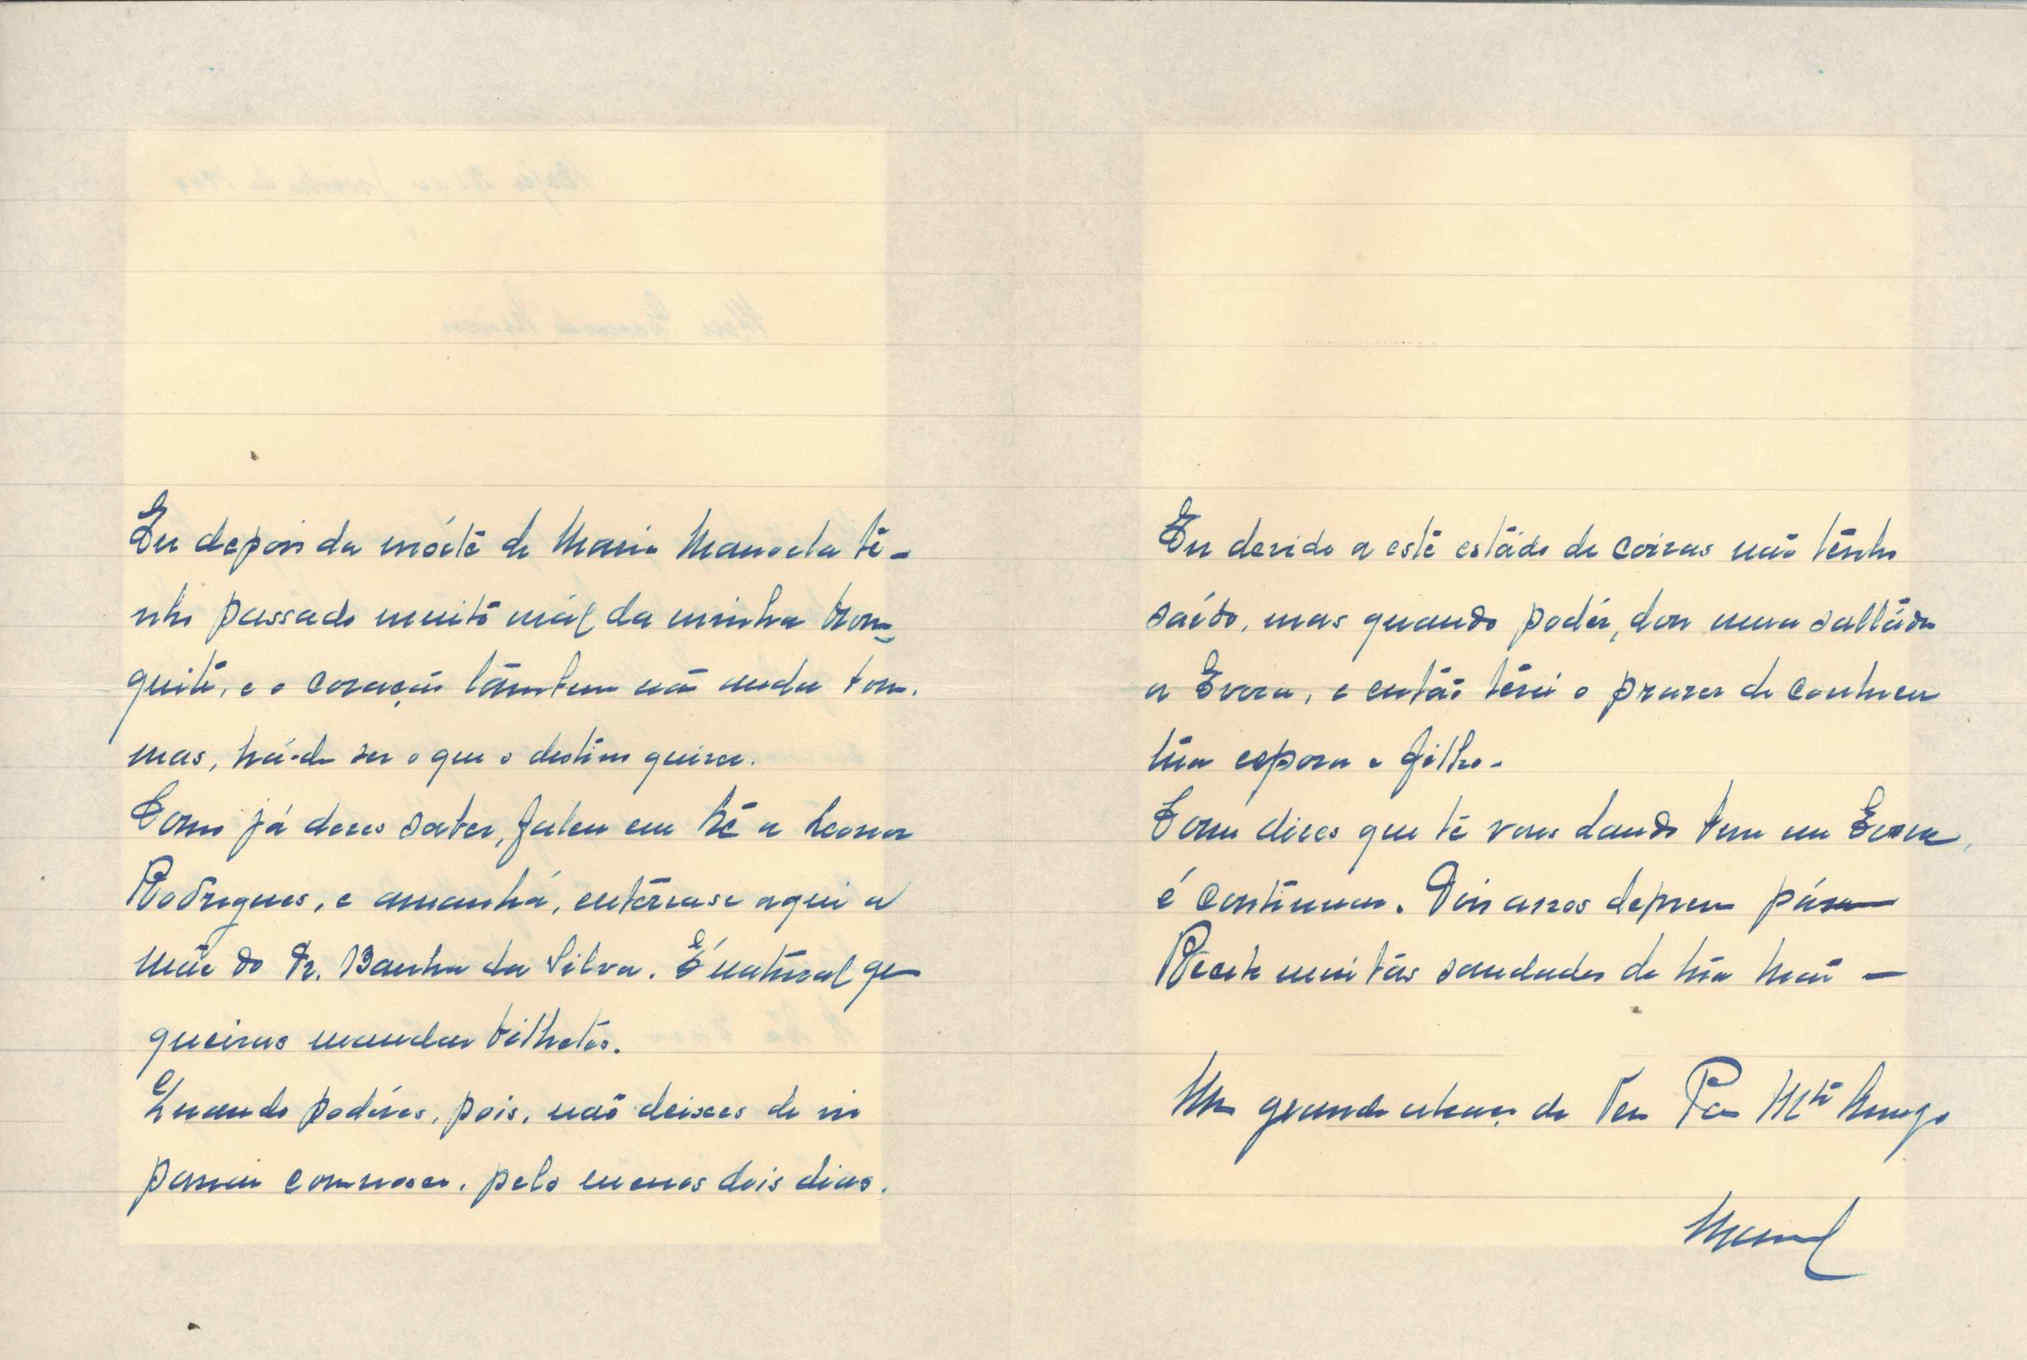 Eu depois da mórte de Maria Manoela te-
nho passado muito mál da minha bron-
quite, e o coração támbem não anda bom.
mas, há-de ser o que o destino quizer.
Como já deves saber, faleu em Bé a Leonor
Rodrigues, e amanhá, enterrase aqui a
mãe do Dr. Banha da Silva. É natural que
queiras mandar bilhetes.
Quando podéres, pois, não deixes de vir
passar comnosco. pelo menos dois dias.
Eu devido a este estádo de coizas não tenho
saído, mas quando podér, dou uma saltáda
a Evora, e então terei o prazer de conhecer
tua espoza e filho.
Como dizes que te vaes dando bem em Evora,
é continuar. Dois anos depressa pásam
Recebe muitas saudades de tua Mãi —
Um grande abraço do Teu Pae Mto Amigo
Manoel